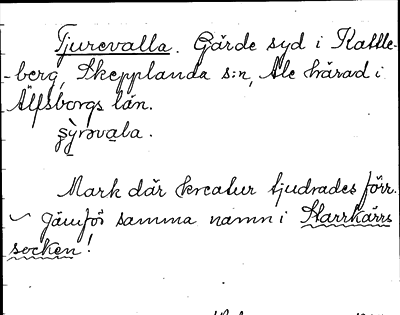 Tjurevalla. Gärde syd i Kattle-
-berg, Skepplanda s:n, Ale härad i
Älfsborgs län.
şỳrəvala.
Mark där kreatur tjudrades förr.
Jämför samma namn i Starrkärrs
socken!